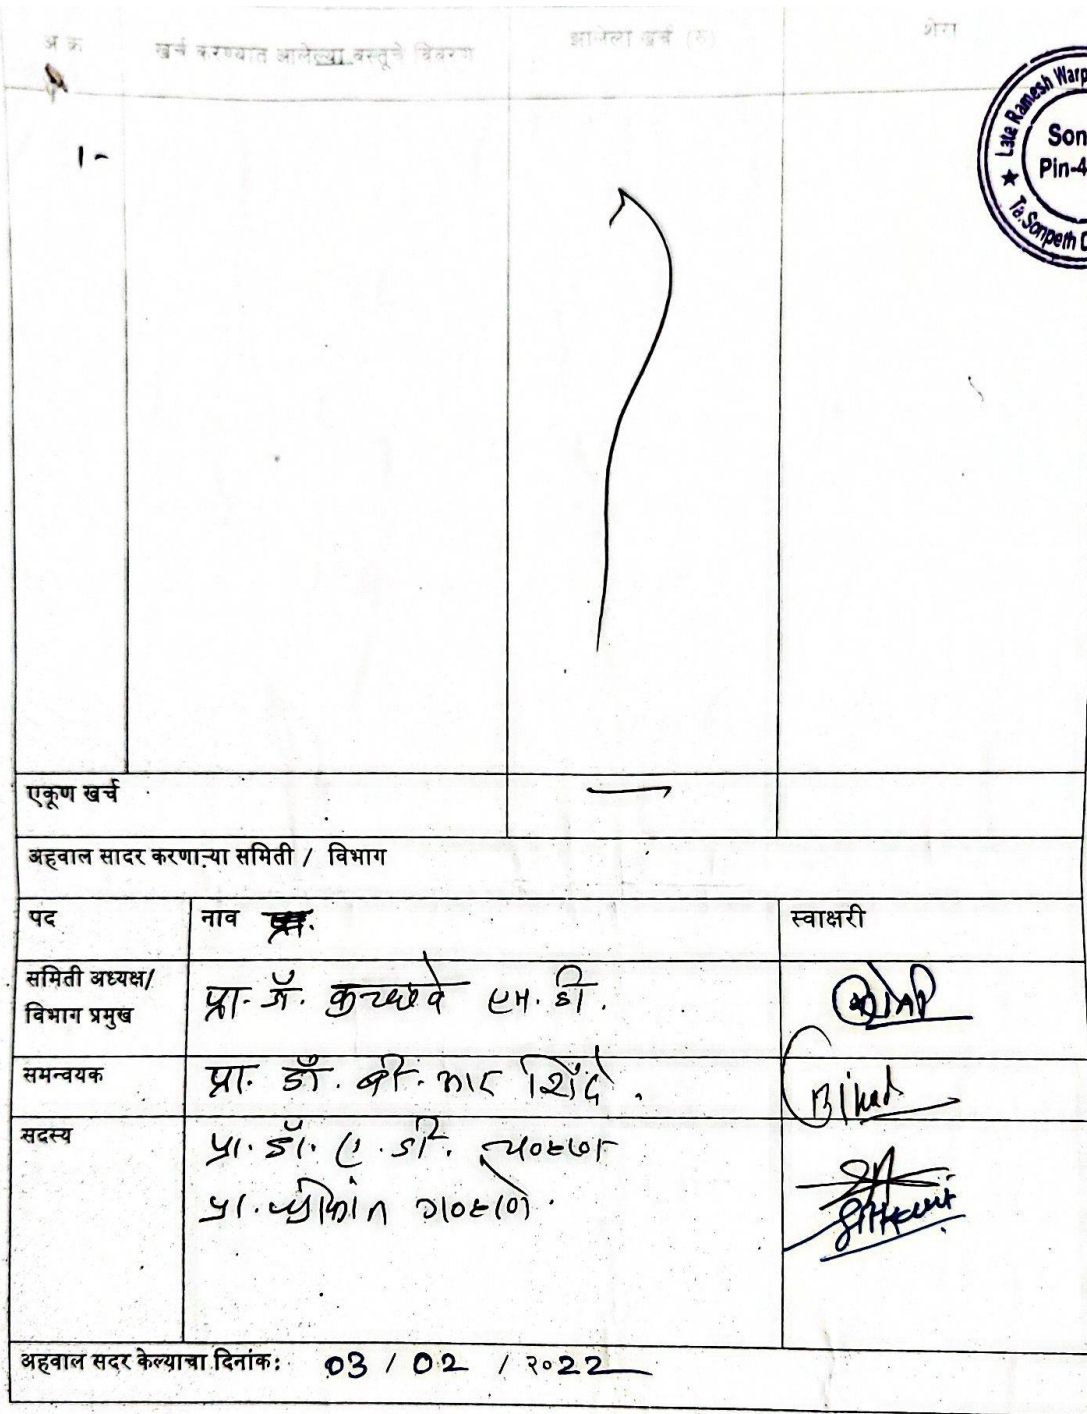 अ क्र खर्च करण्यात आलेल्या वस्तूचे विवरण झालेला खर्च (रु) शेरा
Late Ramesh Warp
Son
Pin-4
Ta.Sonpeth D
1-
एकूण खर्च
अहवाल सादर करणाऱ्या समिती / विभाग
पद नाव स्वाक्षरी
समिती अध्यक्ष/
विभाग प्रमुख प्रा. डॉ. कच्छवे एम. डी.
समन्वयक प्रा. डॉ. बी. आर शिंदे.
सदस्य प्रा. डॉ. ए. डी.
प्रा. श्रीकांत
अहवाल सदर केल्याचा दिनांक: 03 / 02 / २०22